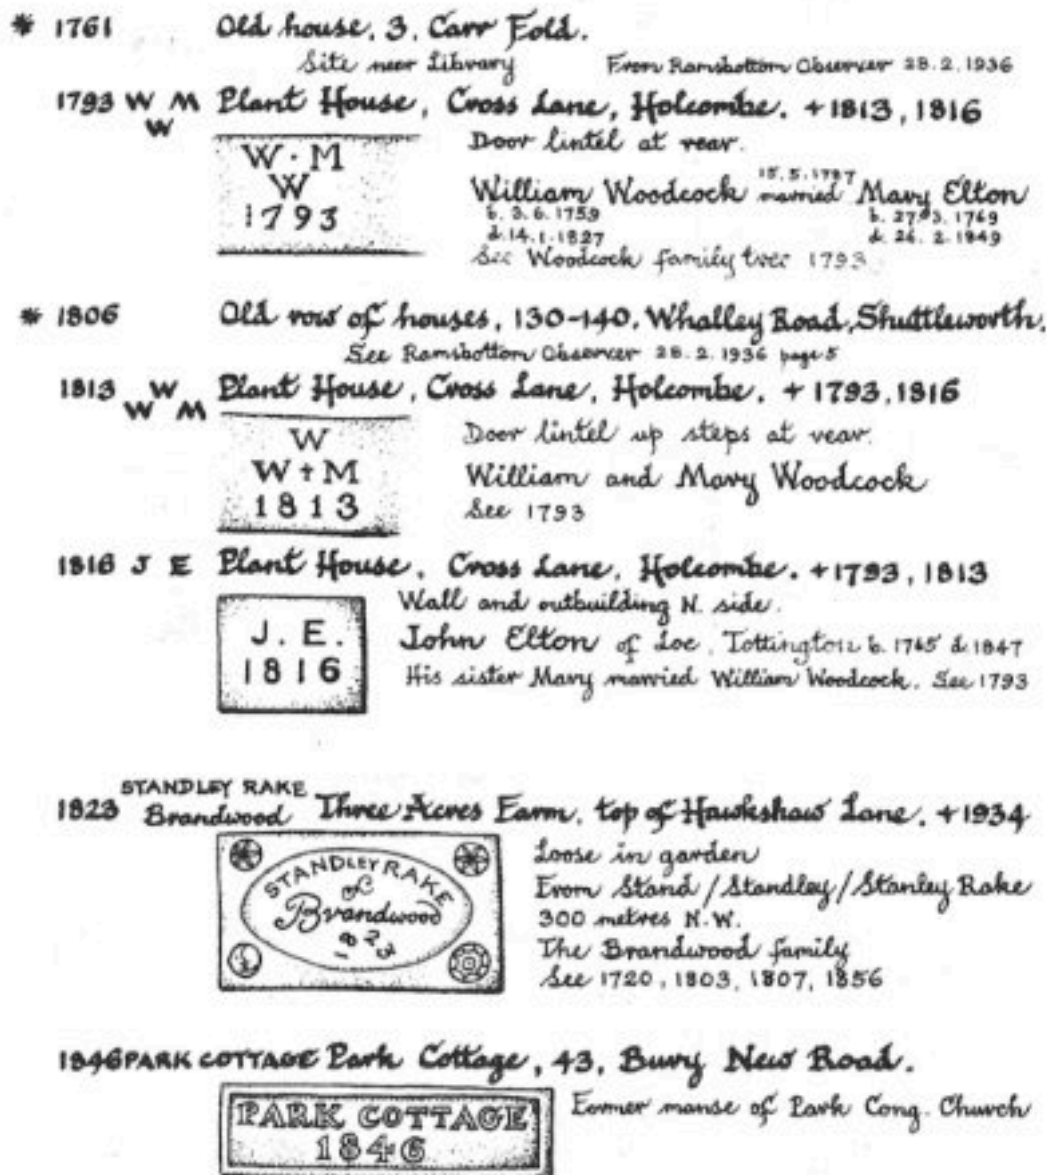 * 1761 Old house, 3, Carr Fold.
Site near Library From Ramsbottom Observer 28.2.1936
1793 W M Plant House, Cross Lane, Holcombe. + 1813, 1816
W
Door lintel at rear.
W · M
W
1793
15.5.1787
William Woodcock married Mary Elton
b. 3.6.1759 b. 27.3.1769
d. 14.1.1827 d. 26.2.1849
See Woodcock family tree 1793
* 1806 Old row of houses, 130-140, Whalley Road, Shuttleworth.
See Ramsbottom Observer 28.2.1936 page 5
1813 W Plant House, Cross Lane, Holcombe. + 1793, 1816
W M
Door lintel up steps at rear.
W
W + M
1813
William and Mary Woodcock
See 1793
1816 J E Plant House, Cross Lane, Holcombe. + 1793, 1813
Wall and outbuilding N. side.
J. E.
1816
John Elton of Loe, Tottington b. 1765 d. 1847
His sister Mary married William Woodcock. See 1793
STANDLEY RAKE
1823 Brandwood Three Acres Farm, top of Hawkshaw Lane. + 1934
STANDLEY RAKE
of
Brandwood
1823
Loose in garden
From Stand / Standley / Stanley Rake
300 metres N.W.
The Brandwood family
See 1720, 1803, 1807, 1856
1846 PARK COTTAGE Park Cottage, 43, Bury New Road.
PARK COTTAGE
1846
Former manse of Park Cong. Church